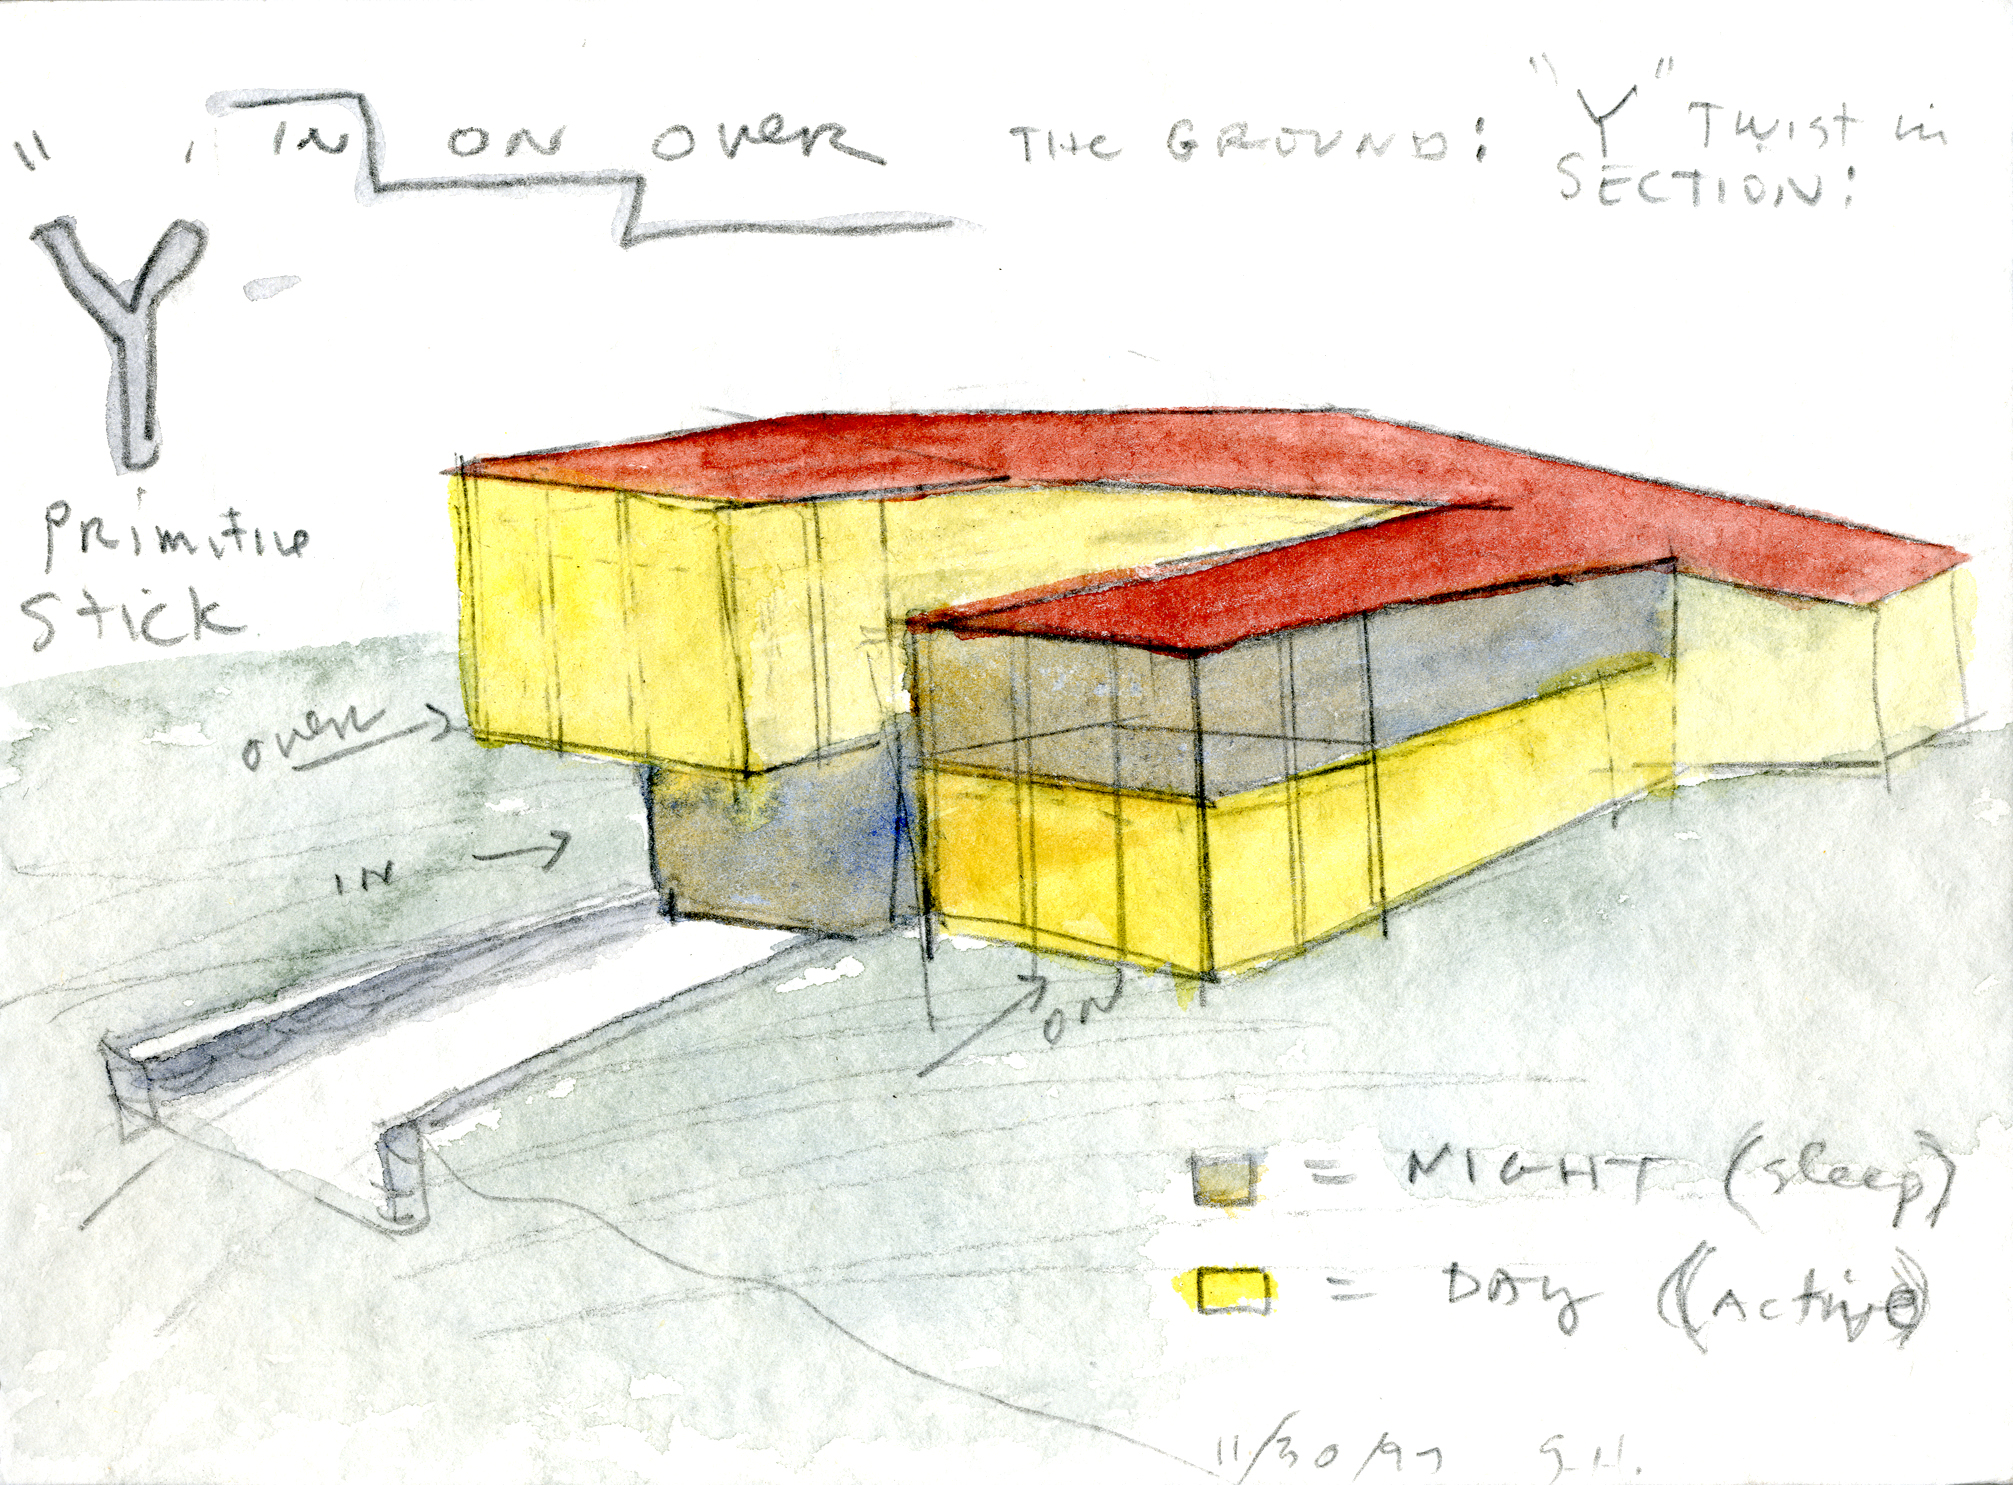 " , IN ON OVER THE GROUND: "Y" TWIST in
SECTION:
Y
PRimitive
Stick
over
IN
ON
= NIGHT (sleep)
= DAy (Active)
11/30/97 S.H.